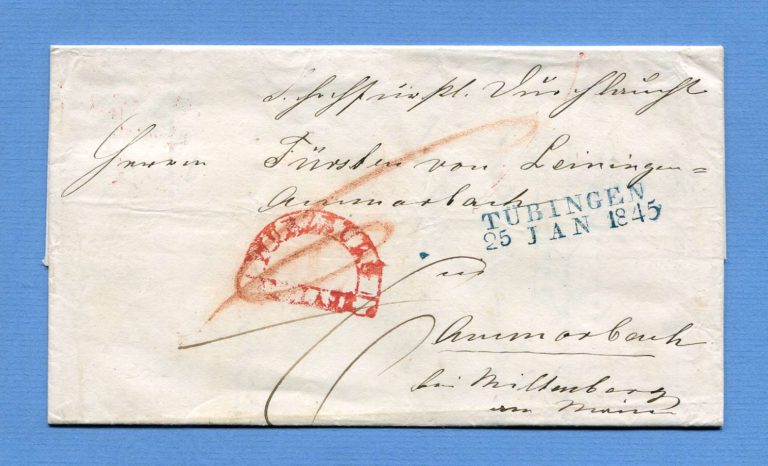 S. hochfürstl. Durchlaucht
Herrn Fürsten von Leiningen=
Ammorbach
TÜBINGEN
25 JAN 1845
in
Ammorbach
bei Miltenberg
am Main